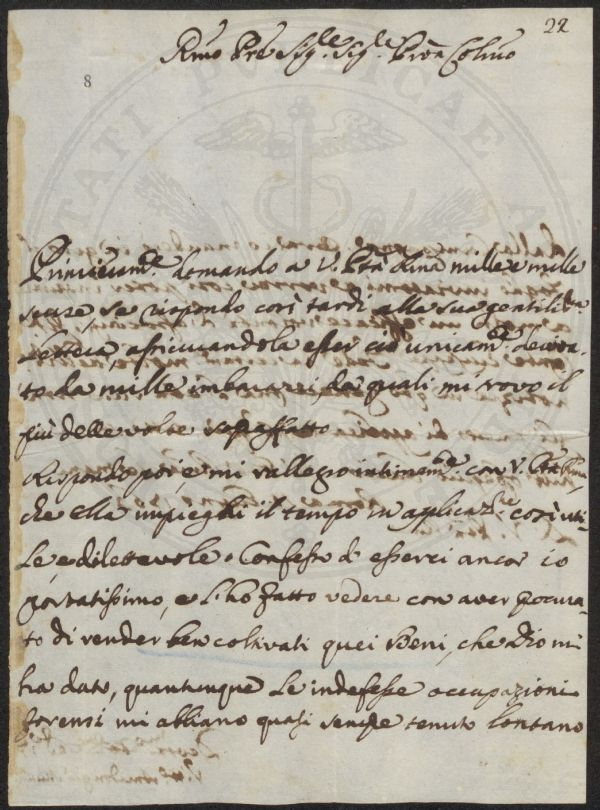 22
Rmo Pre Sig.re Sig.re Pron Colmo
8
Primieram.e domando a V. Ptà Rma mille e mille
scuse, se rispondo così tardi alla sua gentiliss.ma
Lettera, assicurandola esser ciò unicam.e deriva-
to da mille imbarazzi, da quali mi trovo il
più delle volte sopraffatto
Rispondo poi, e mi rallegro intimam.te con V. Ptà Rma
che Ella impieghi il tempo in applicaz.ne così uti-
le, e dilettevole. Confesso d'esserci ancor io
portatissimo, e l'ho fatto vedere con aver procura-
to di render ben coltivati quei Beni, che Dio mi
ha dato, quantunque le indefesse occupazioni
forensi mi abbiano quasi sempre tenuto lontano